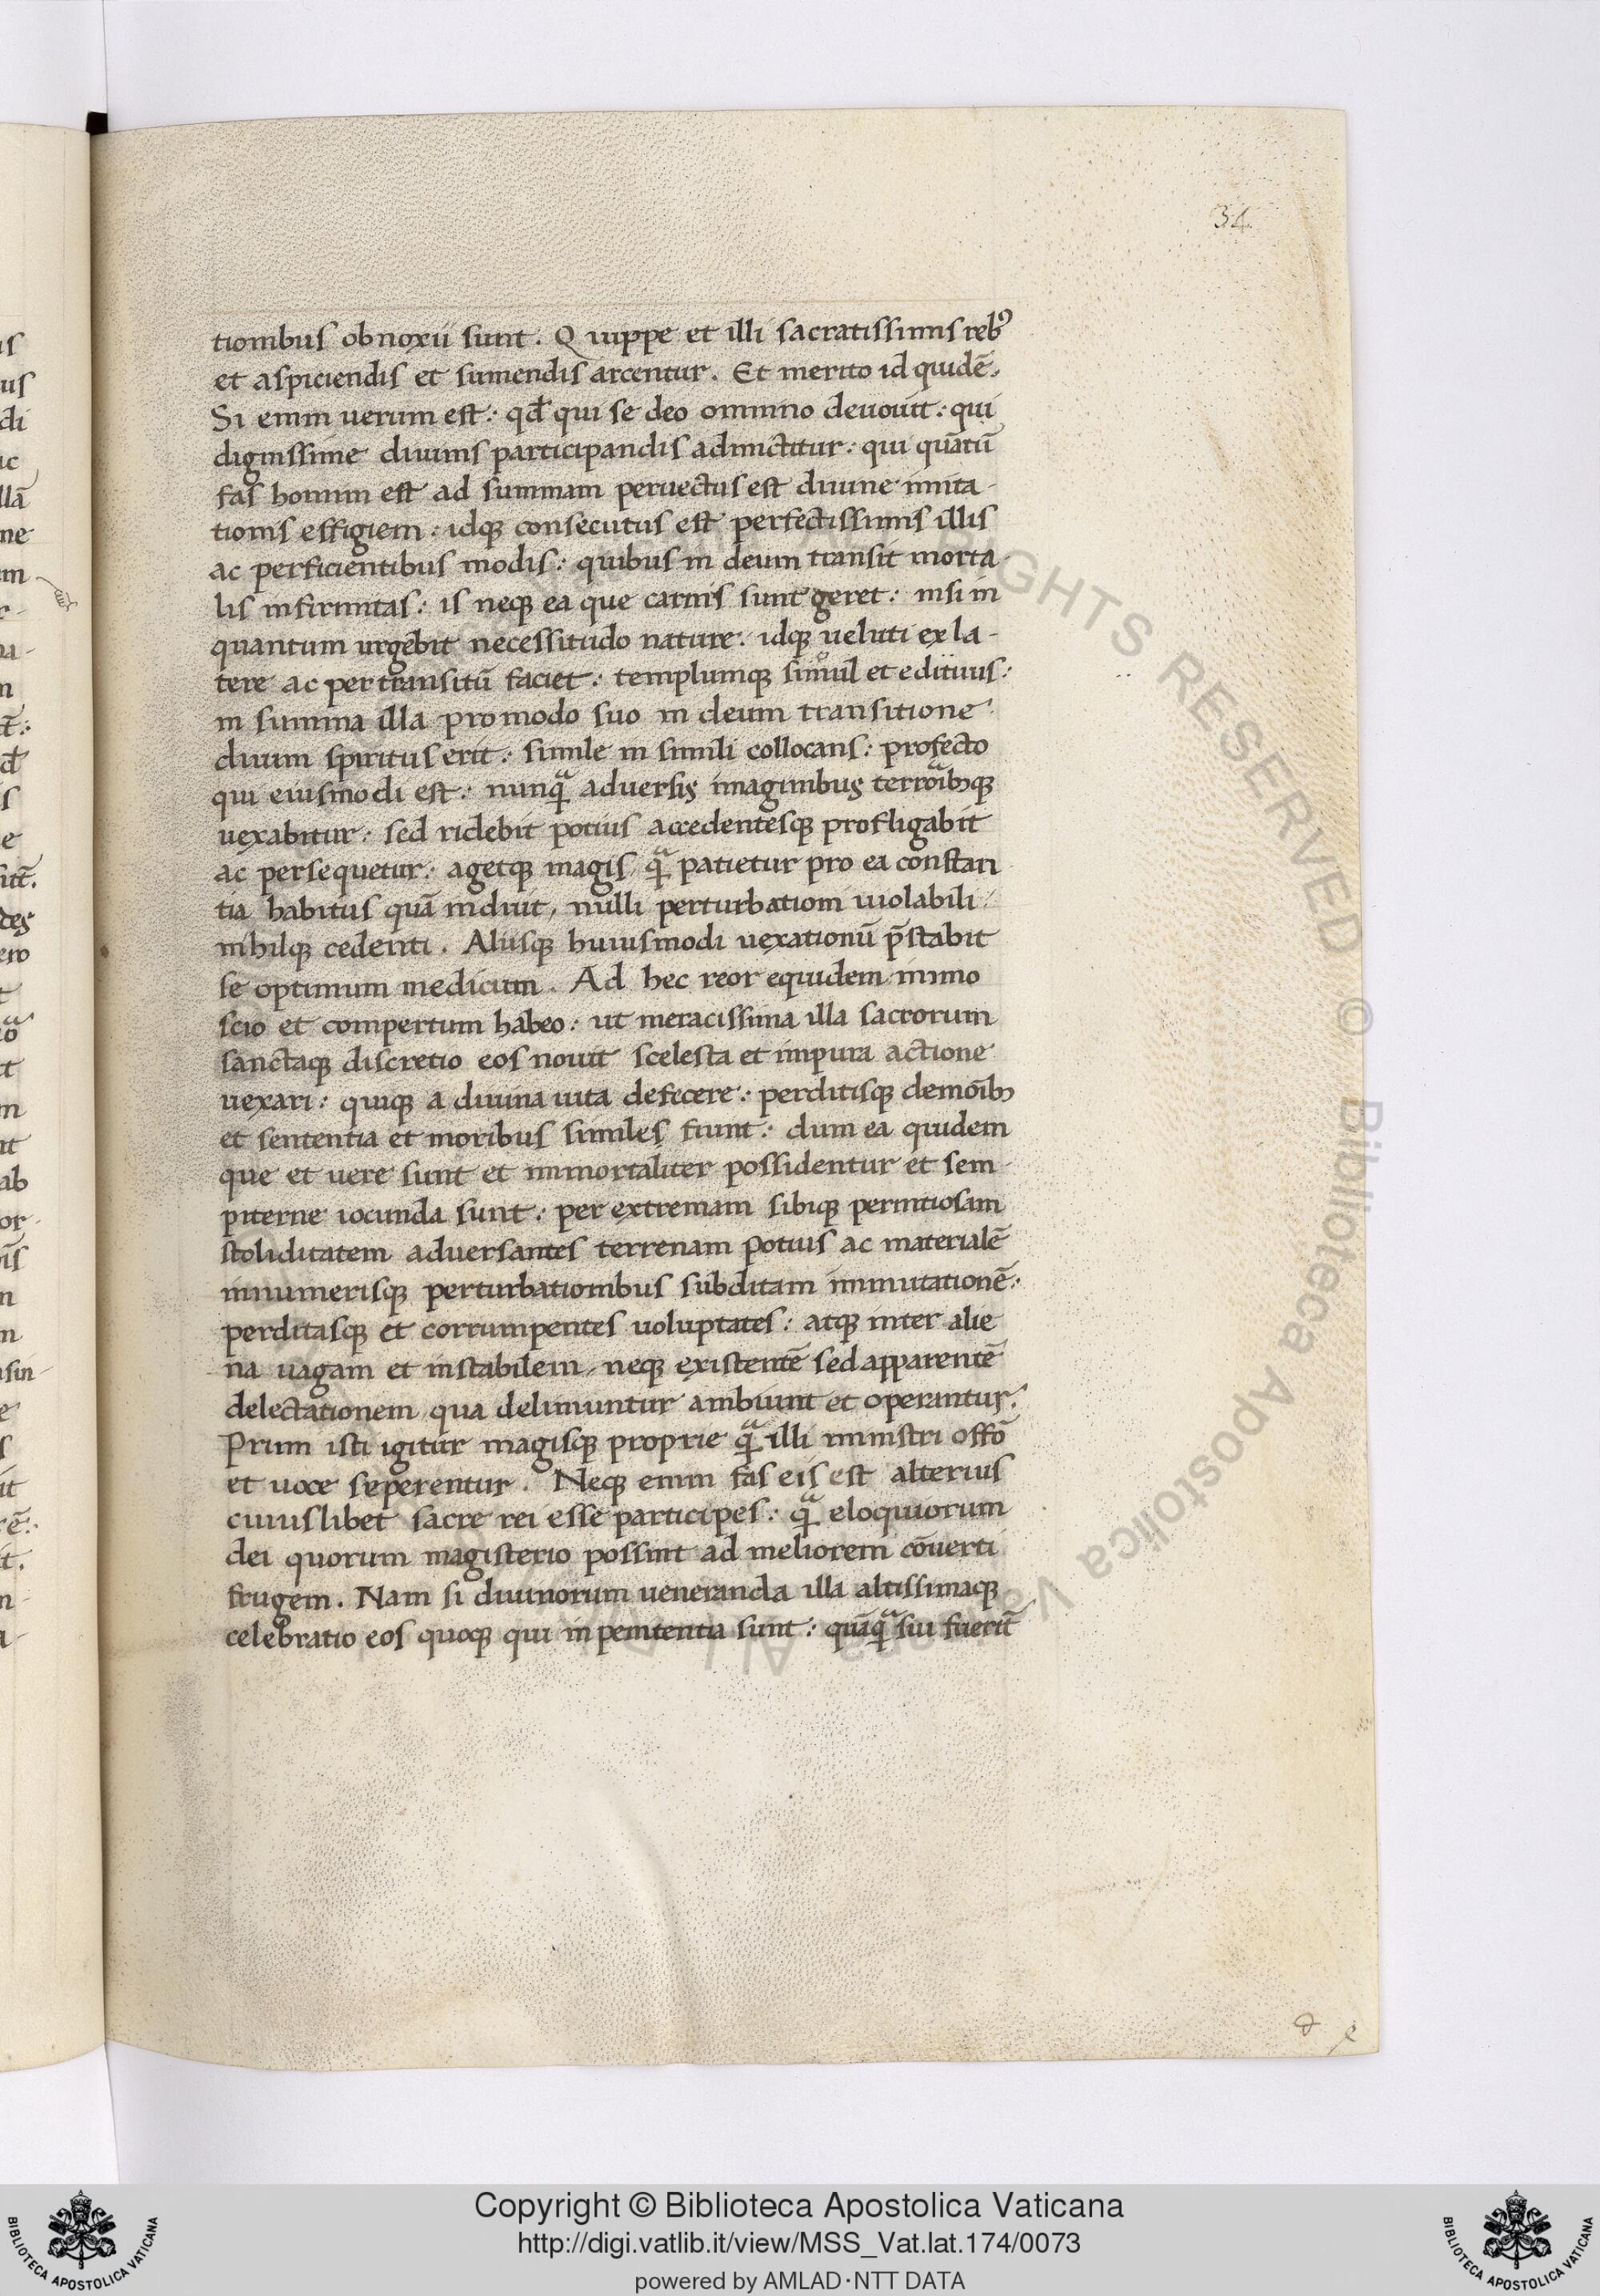 34
tionibus obnoxii sunt. Quippe et illi sacratissimis reb᾽
et aspiciendis et sumendis arcentur. Et merito id quidē.
Si enim uerum est: qđ qui se deo omnino deuouit: qui
dignissime diuinis participandis admictitur: qui quātū
fas homini est ad summam peruectus est diuine imita-
tionis effigiem: idq; consecutus est perfectissimis illis
ac perficientibus modis: quibus in deum transit morta-
lis infirmitas: is neq; ea que carnis sunt geret: nisi in
quantum urgebit necessitudo nature: idq; ueluti ex la-
tere ac per transitū faciet: templumq; simul et edituus:
in summa illa pro modo suo in deum transitione
diuini spiritus erit: simile in simili collocans: profecto
qui eiusmodi est: nunqᷓ aduersis imaginibus terroribꝫq;
uexabitur: sed ridebit potius accedentesq; profligabit
ac persequetur: agetq; magis qᷓ patietur pro ea constan
tia habitus quā induit, nulli perturbationi uiolabili
nihilq; cedenti. Aliisq; huiusmodi uexationū p̄stabit
se optimum medicum. Ad hec reor equidem immo
scio et compertum habeo: ut meracissima illa sacrorum
sanctaq; discretio eos nouit scelesta et impura actione
uexari: quiq; a diuina uita defecere: perditisq; demōibꝫ
et sententia et moribus similes fiunt: dum ea quidem
que et uere sunt et immortaliter possidentur et sem-
piterne iocunda sunt: per extremam sibiq; pernitiosam
stoliditatem aduersantes terrenam potius ac materialē
innumerisq; perturbationibus subditam immutationē:
perditasq; et corrumpentes uoluptates: atq; inter alie
na uagam et instabilem, neq; existentē sed apparentē
delectationem, qua deliniuntur ambiunt et operantur.
Primi isti igitur magisq; proprie qᷓ illi ministri offō
et uoce seperentur. Neq; enim fas eis est alterius
cuiuslibet sacre rei esse participes: qᷓ eloquiorum
dei quorum magisterio possint ad meliorem cōuerti
frugem. Nam si diuinorum ueneranda illa altissimaq;
celebratio eos quoq; qui in penitentia sunt: quāqᷓ sui fuerit̄
Copyright © Biblioteca Apostolica Vaticana
http://digi.vatlib.it/view/MSS_Vat.lat.174/0073
powered by AMLAD·NTT DATA